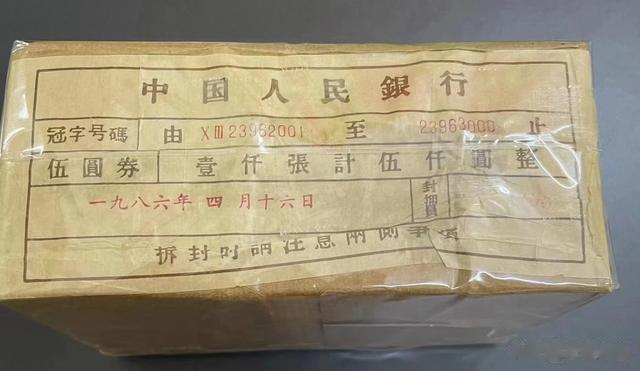 中国人民銀行
冠字号碼 由 XⅢ23962001 至 23963000 止
伍圓券 壹仟張計伍仟圓整
一九八六年 四月十六日 封捆員
拆封时請注意兩側事項